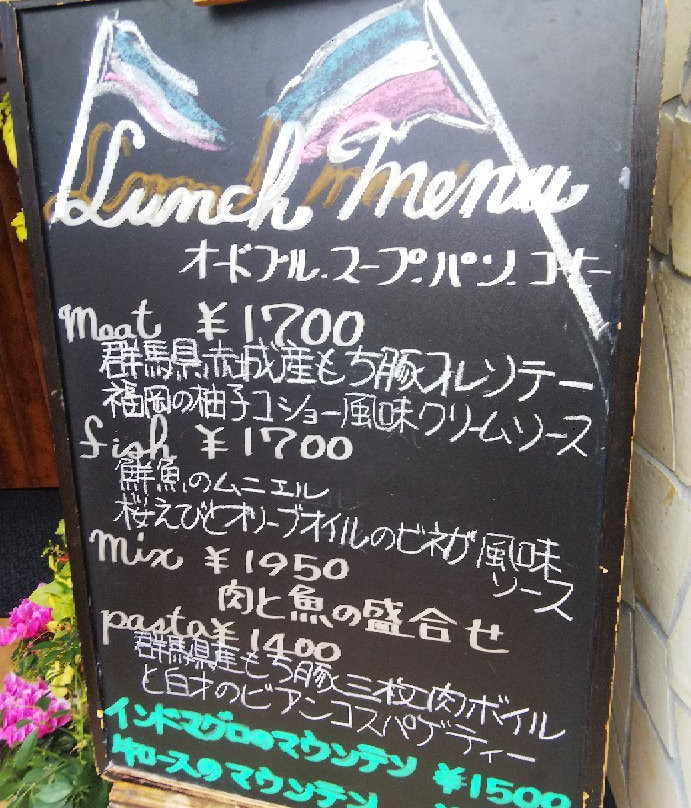 Lunch Menu
オードブル・スープ・パン・コーヒー
Meat ¥1700
群馬県赤城産もち豚フレソテー
福岡の柚子コショー風味クリームソース
fish ¥1700
鮮魚のムニエル
桜えびとオリーブオイルのビネガー風味
ソース
Mix ¥1950
肉と魚の盛合せ
pasta ¥1400
群馬県産もち豚三枚肉ボイル
と白才のビアンコスパゲティー
インドマグロのマウンテン ¥1500
牛ロースのマウンテン